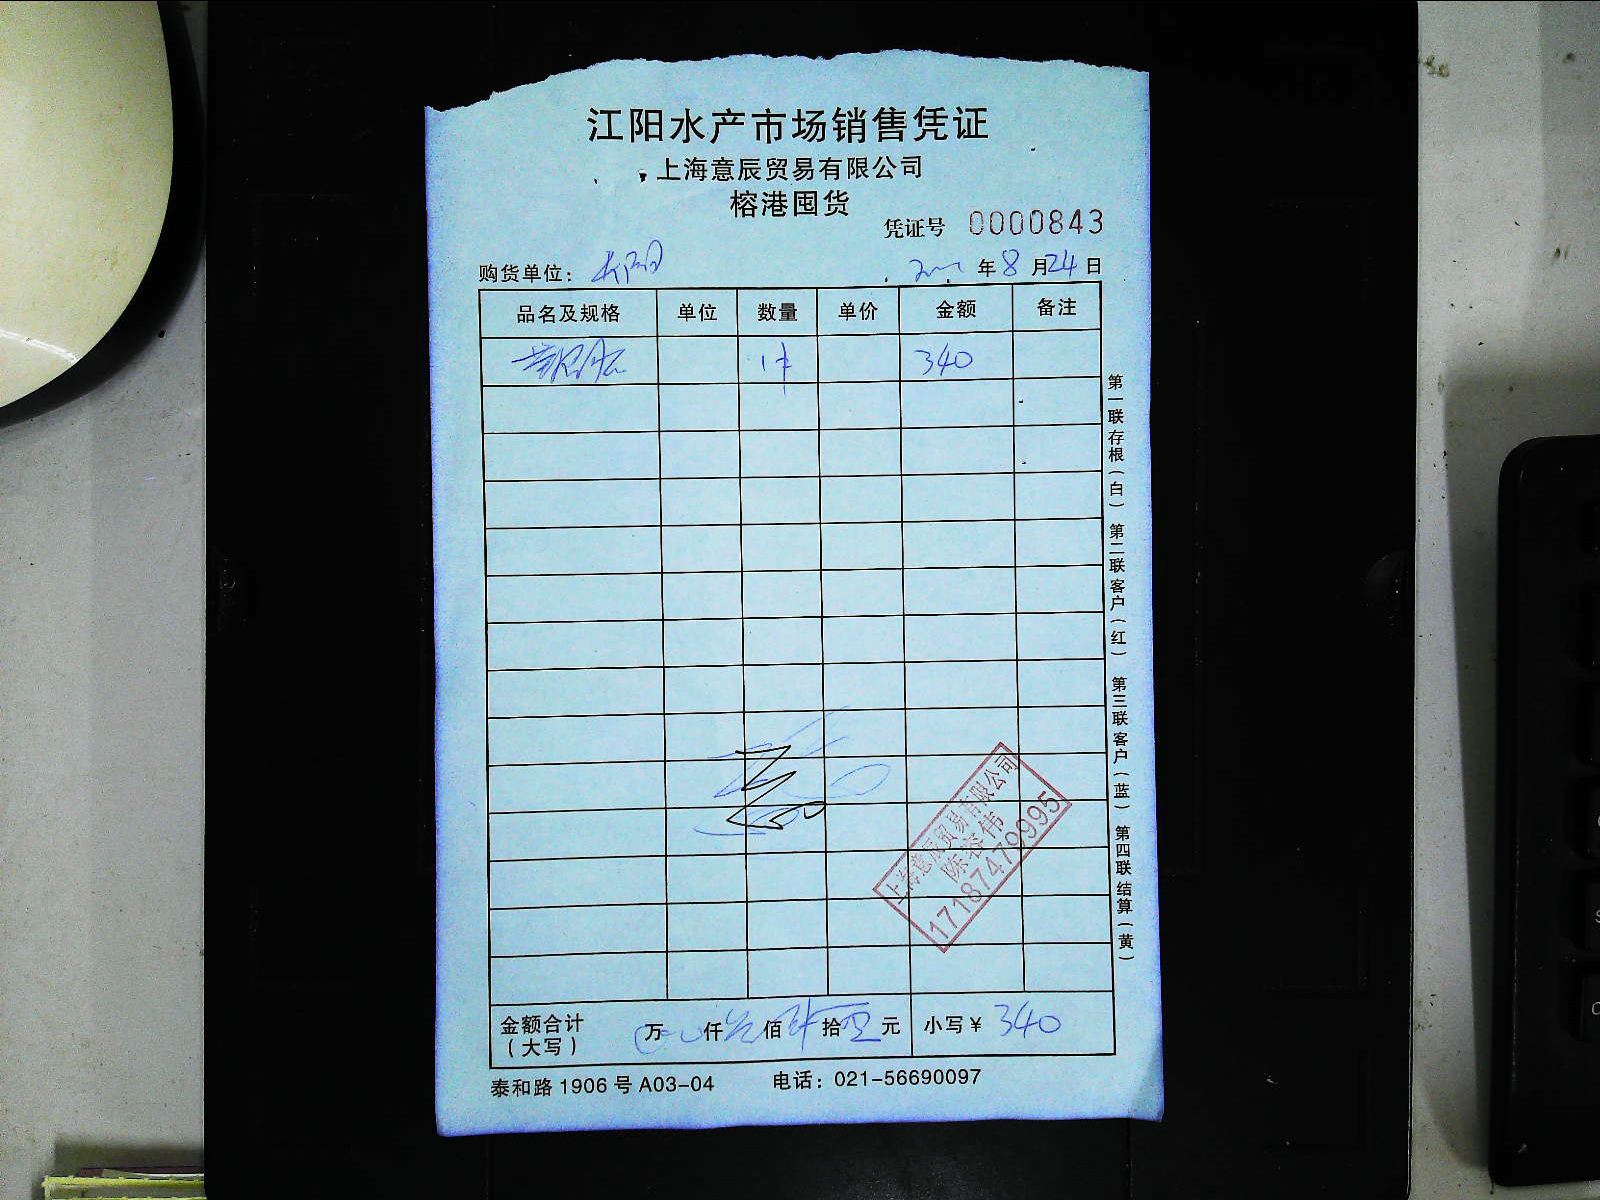 江阳水产市场销售凭证
上海意辰贸易有限公司
榕港囤货
凭证号 0000843
购货单位：
年 8 月 24 日
品名及规格 单位 数量 单价 金额 备注
1件 340
第一联存根（白） 第二联客户（红） 第三联客户（蓝） 第四联结算（黄）
上海意辰贸易有限公司
陈容伟
17187479995
金额合计（大写） 万 仟 叁 佰 肆 拾 零 元 小写￥ 340
泰和路 1906 号 A03-04 电话：021-56690097